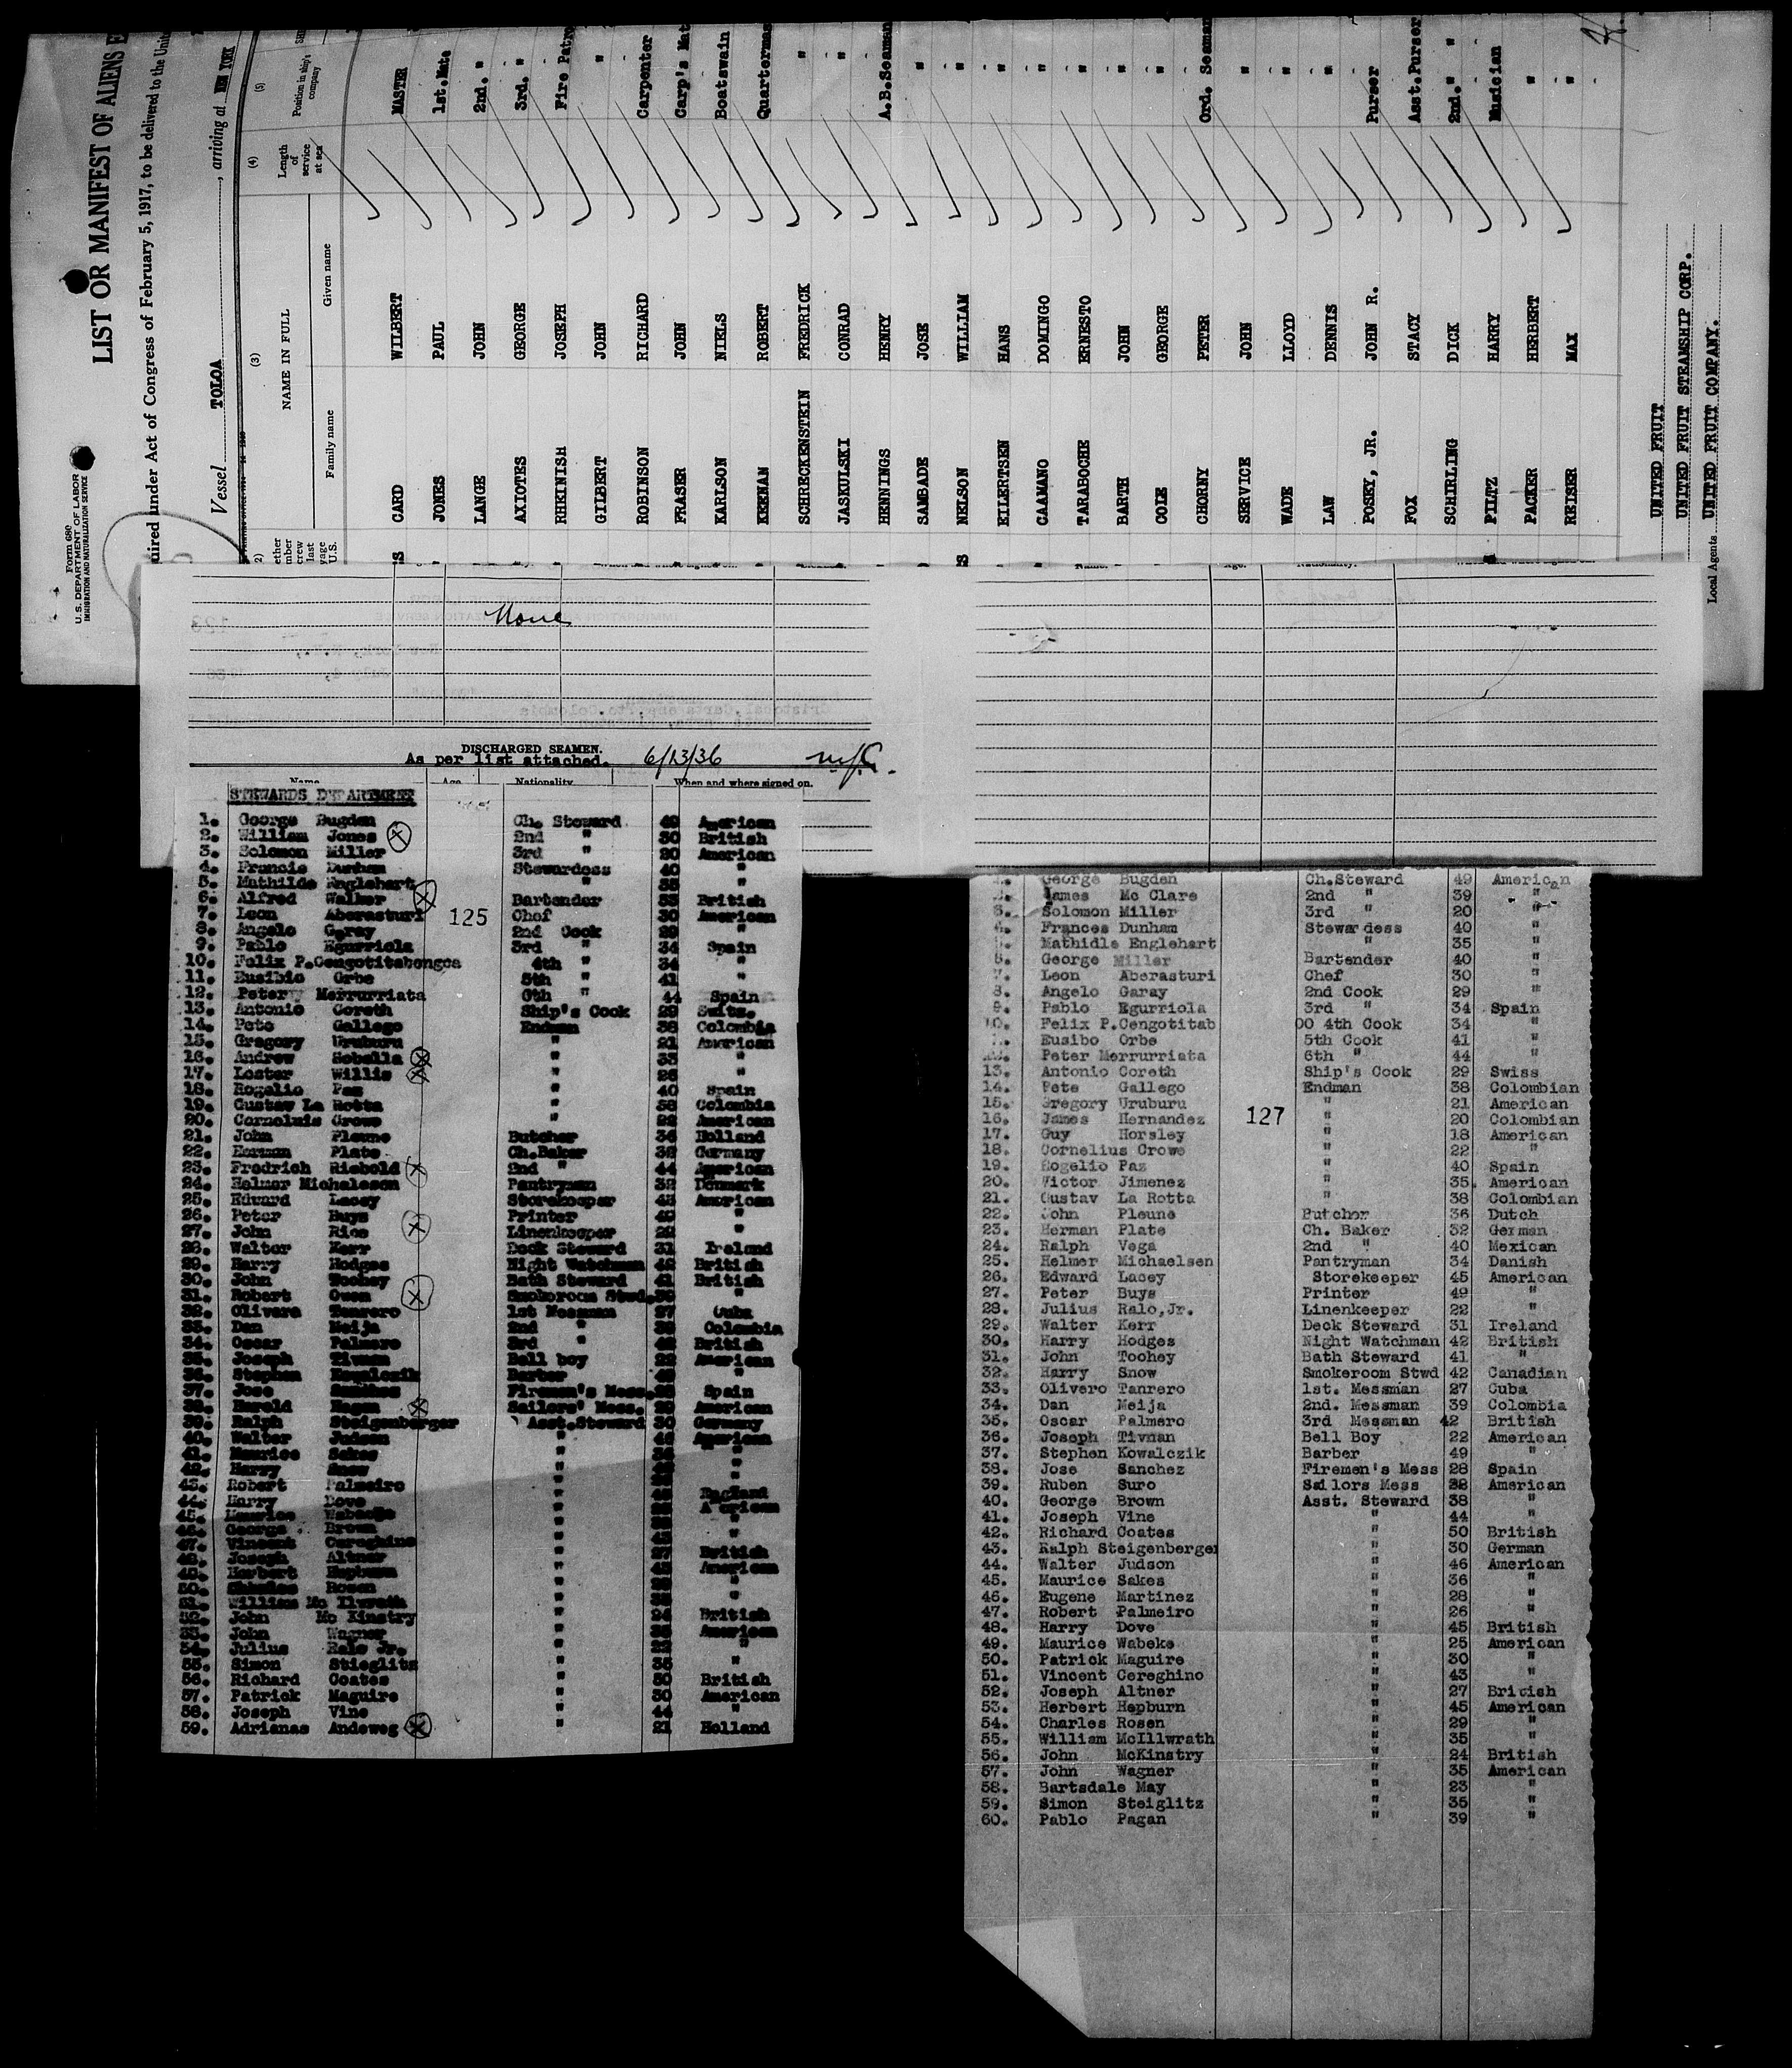 Form 680
U.S. DEPARTMENT OF LABOR
IMMIGRATION AND NATURALIZATION SERVICE
LIST OR MANIFEST OF ALIENS E
uired under Act of Congress of February 5, 1917, to be delivered to the Unite
Vessel TOLOA, arriving at NEW YORK
(3) (4) (5)
NAME IN FULL
Family name Given name
Length of service at sea
Position in ship's company
CARD WILBERT MASTER
JONES PAUL 1st.Mate
LANGE JOHN 2nd. "
AXIOTES GEORGE 3rd. "
RHEINISH JOSEPH Fire Patro
GILBERT JOHN "
ROBINSON RICHARD Carpenter
FRASER JOHN Carp's Mat
KARLSON NIELS Boatswain
KEENAN ROBERT Quartermas
SCHRECKENSTEIN FREDRICK "
JASKULSKI CONRAD "
HENNINGS HENRY A.B.Seaman
SAMBADE JOSE "
NELSON WILLIAM "
EILERTSEN HANS "
CAAMANO DOMINGO "
TARABOCHE ERNESTO "
BARTH JOHN "
COLE GEORGE "
CHORNY PETER Ord. Seaman
SERVICE JOHN "
WADE LLOYD "
LAW DENNIS "
POSEY, JR. JOHN R. Purser
FOX STACY Asst.Purser
SCHIRLING DICK 2nd. " "
PILTZ HARRY Musician
PACKER HERBERT "
REISER MAX "
UNITED FRUIT
UNITED FRUIT STEAMSHIP CORP.
Local Agents UNITED FRUIT COMPANY.
None
DISCHARGED SEAMEN.
As per list attached. 6/13/36
Name Age Nationality When and where signed on.
STEWARDS DEPARTMENT
1. George Bugden Ch. Steward 49 American
2. William Jones 2nd " 30 British
3. Solomon Miller 3rd " 20 American
4. Francis Dunham Stewardess 40 "
5. Mathilde Englehart " 35 "
6. Alfred Walker Bartender 53 British
7. Leon Aberasturi 125 Chef 30 American
8. Angelo Garay 2nd Cook 29 "
9. Pablo Egurriola 3rd " 34 Spain
10. Felix P.Cengotitabengoa 4th " 34 "
11. Eusibio Orbe 5th " 41 "
12. Peter Merrurriata 6th " 44 Spain
13. Antonio Coreth Ship's Cook 29 Switz.
14. Pete Gallego Endman 38 Colombia
15. Gregory Uruburu " 21 American
16. Andrew Sobella " 33 "
17. Lester Willis " 26 "
18. Rogelio Paz " 40 Spain
19. Gustav La Rotta " 38 Colombia
20. Corneluis Crowe " 22 American
21. John Pleune Butcher 36 Holland
22. Herman Plate Ch.Baker 32 Germany
23. Fredrich Riebold 2nd " 44 American
24. Helmer Michaleson Pantryman 32 Denmark
25. Edward Lacey Storekeeper 45 American
26. Peter Buys Printer 49 "
27. John Rice Linenkeeper 29 "
28. Walter Kerr Deck Steward 31 Ireland
29. Harry Hodges Night Watchman 42 British
30. John Toohey Bath Steward 41 British
31. Robert Owen Smokeroom Stwd. "
32. Olivera Tanrero 1st Messman 27 Cuba
33. Dan Meija 2nd " Colombia
34. Oscar Palmero 3rd " 42 British
35. Joseph Tivnan Bell boy 22 American
36. Stephen Kowalczik Barber "
37. Jose Firemen's Mess. Spain
38. Harold Sailors' Mess. American
39. Ralph Steigenberger Asst.Steward 30 Germany
40. Walter Judson " 46 American
41. Maurice Sakes " "
42. Harry Snow " "
43. Robert Palmeiro " "
44. Harry Dove " England
45. Maurice Wabecke " American
46. George Brown " "
47. Vincent Cereghino " "
48. Joseph Altner " British
49. Herbert Hepburn " American
50. Charles Rosen " "
51. William Mc Ilwrath " "
52. John Mc Kinstry " 24 British
53. John Wagner " 35 American
54. Julius Ralo Jr. " 22 "
55. Simon Stieglitz " 35 "
56. Richard Coates " 50 British
57. Patrick Maguire " 30 American
58. Joseph Vine " 44 "
59. Adrianas Andeweg " 21 Holland
George Bugden Ch.Steward 49 American
James Mc Clare 2nd " 39 "
3. Solomon Miller 3rd " 20 "
4. Frances Dunham Stewardess 40 "
Mathidle Englehart " 35 "
6. George Miller Bartender 40 "
7. Leon Aberasturi Chef 30 "
8. Angelo Garay 2nd Cook 29 "
9. Pablo Egurriola 3rd " 34 Spain
10. Felix P.Cengotitab OO 4th Cook 34 "
Eusibo Orbe 5th Cook 41 "
12. Peter Merrurriata 6th " 44 "
13. Antonio Coreth Ship's Cook 29 Swiss
14. Pete Gallego Endman 38 Colombian
15. Gregory Uruburu " 21 American
16. James Hernandez 127 " 20 Colombian
17. Guy Horsley " 18 American
18. Cornelius Crowe " 22 "
19. Rogelio Paz " 40 Spain
20. Victor Jimenez " 35. American
21. Gustav La Rotta " 38 Colombian
22. John Pleune Butcher 36 Dutch
23. Herman Plate Ch. Baker 32 German
24. Ralph Vega 2nd " 40 Mexican
25. Helmer Michaelsen Pantryman 34 Danish
26. Edward Lacey Storekeeper 45 American
27. Peter Buys Printer 49 "
28. Julius Ralo,Jr. Linenkeeper 22 "
29. Walter Kerr Deck Steward 31 Ireland
30. Harry Hodges Night Watchman 42 British
31. John Toohey Bath Steward 41 "
32. Harry Snow Smokeroom Stwd 42 Canadian
33. Olivero Tanrero 1st. Messman 27 Cuba
34. Dan Meija 2nd. Messman 39 Colombia
35. Oscar Palmero 3rd Messman 42 British
36. Joseph Tivnan Bell Boy 22 American
37. Stephen Kowalczik Barber 49 "
38. Jose Sanchez Firemen's Mess 28 Spain
39. Ruben Suro Sailors Mess 32 American
40. George Brown Asst. Steward 38 "
41. Joseph Vine " 44 "
42. Richard Coates " 50 British
43. Ralph Steigenberger " 30 German
44. Walter Judson " 46 American
45. Maurice Sakes " 36 "
46. Eugene Martinez " 28 "
47. Robert Palmeiro " 26 "
48. Harry Dove " 45 British
49. Maurice Wabeke " 25 American
50. Patrick Maguire " 30 "
51. Vincent Cereghino " 43 "
52. Joseph Altner " 27 British
53. Herbert Hepburn " 45 American
54. Charles Rosen " 29 "
55. William McIllwrath " 35 "
56. John McKinstry " 24 British
57. John Wagner " 35 American
58. Bartsdale May " 23 "
59. Simon Steiglitz " 35 "
60. Pablo Pagan " 39 "